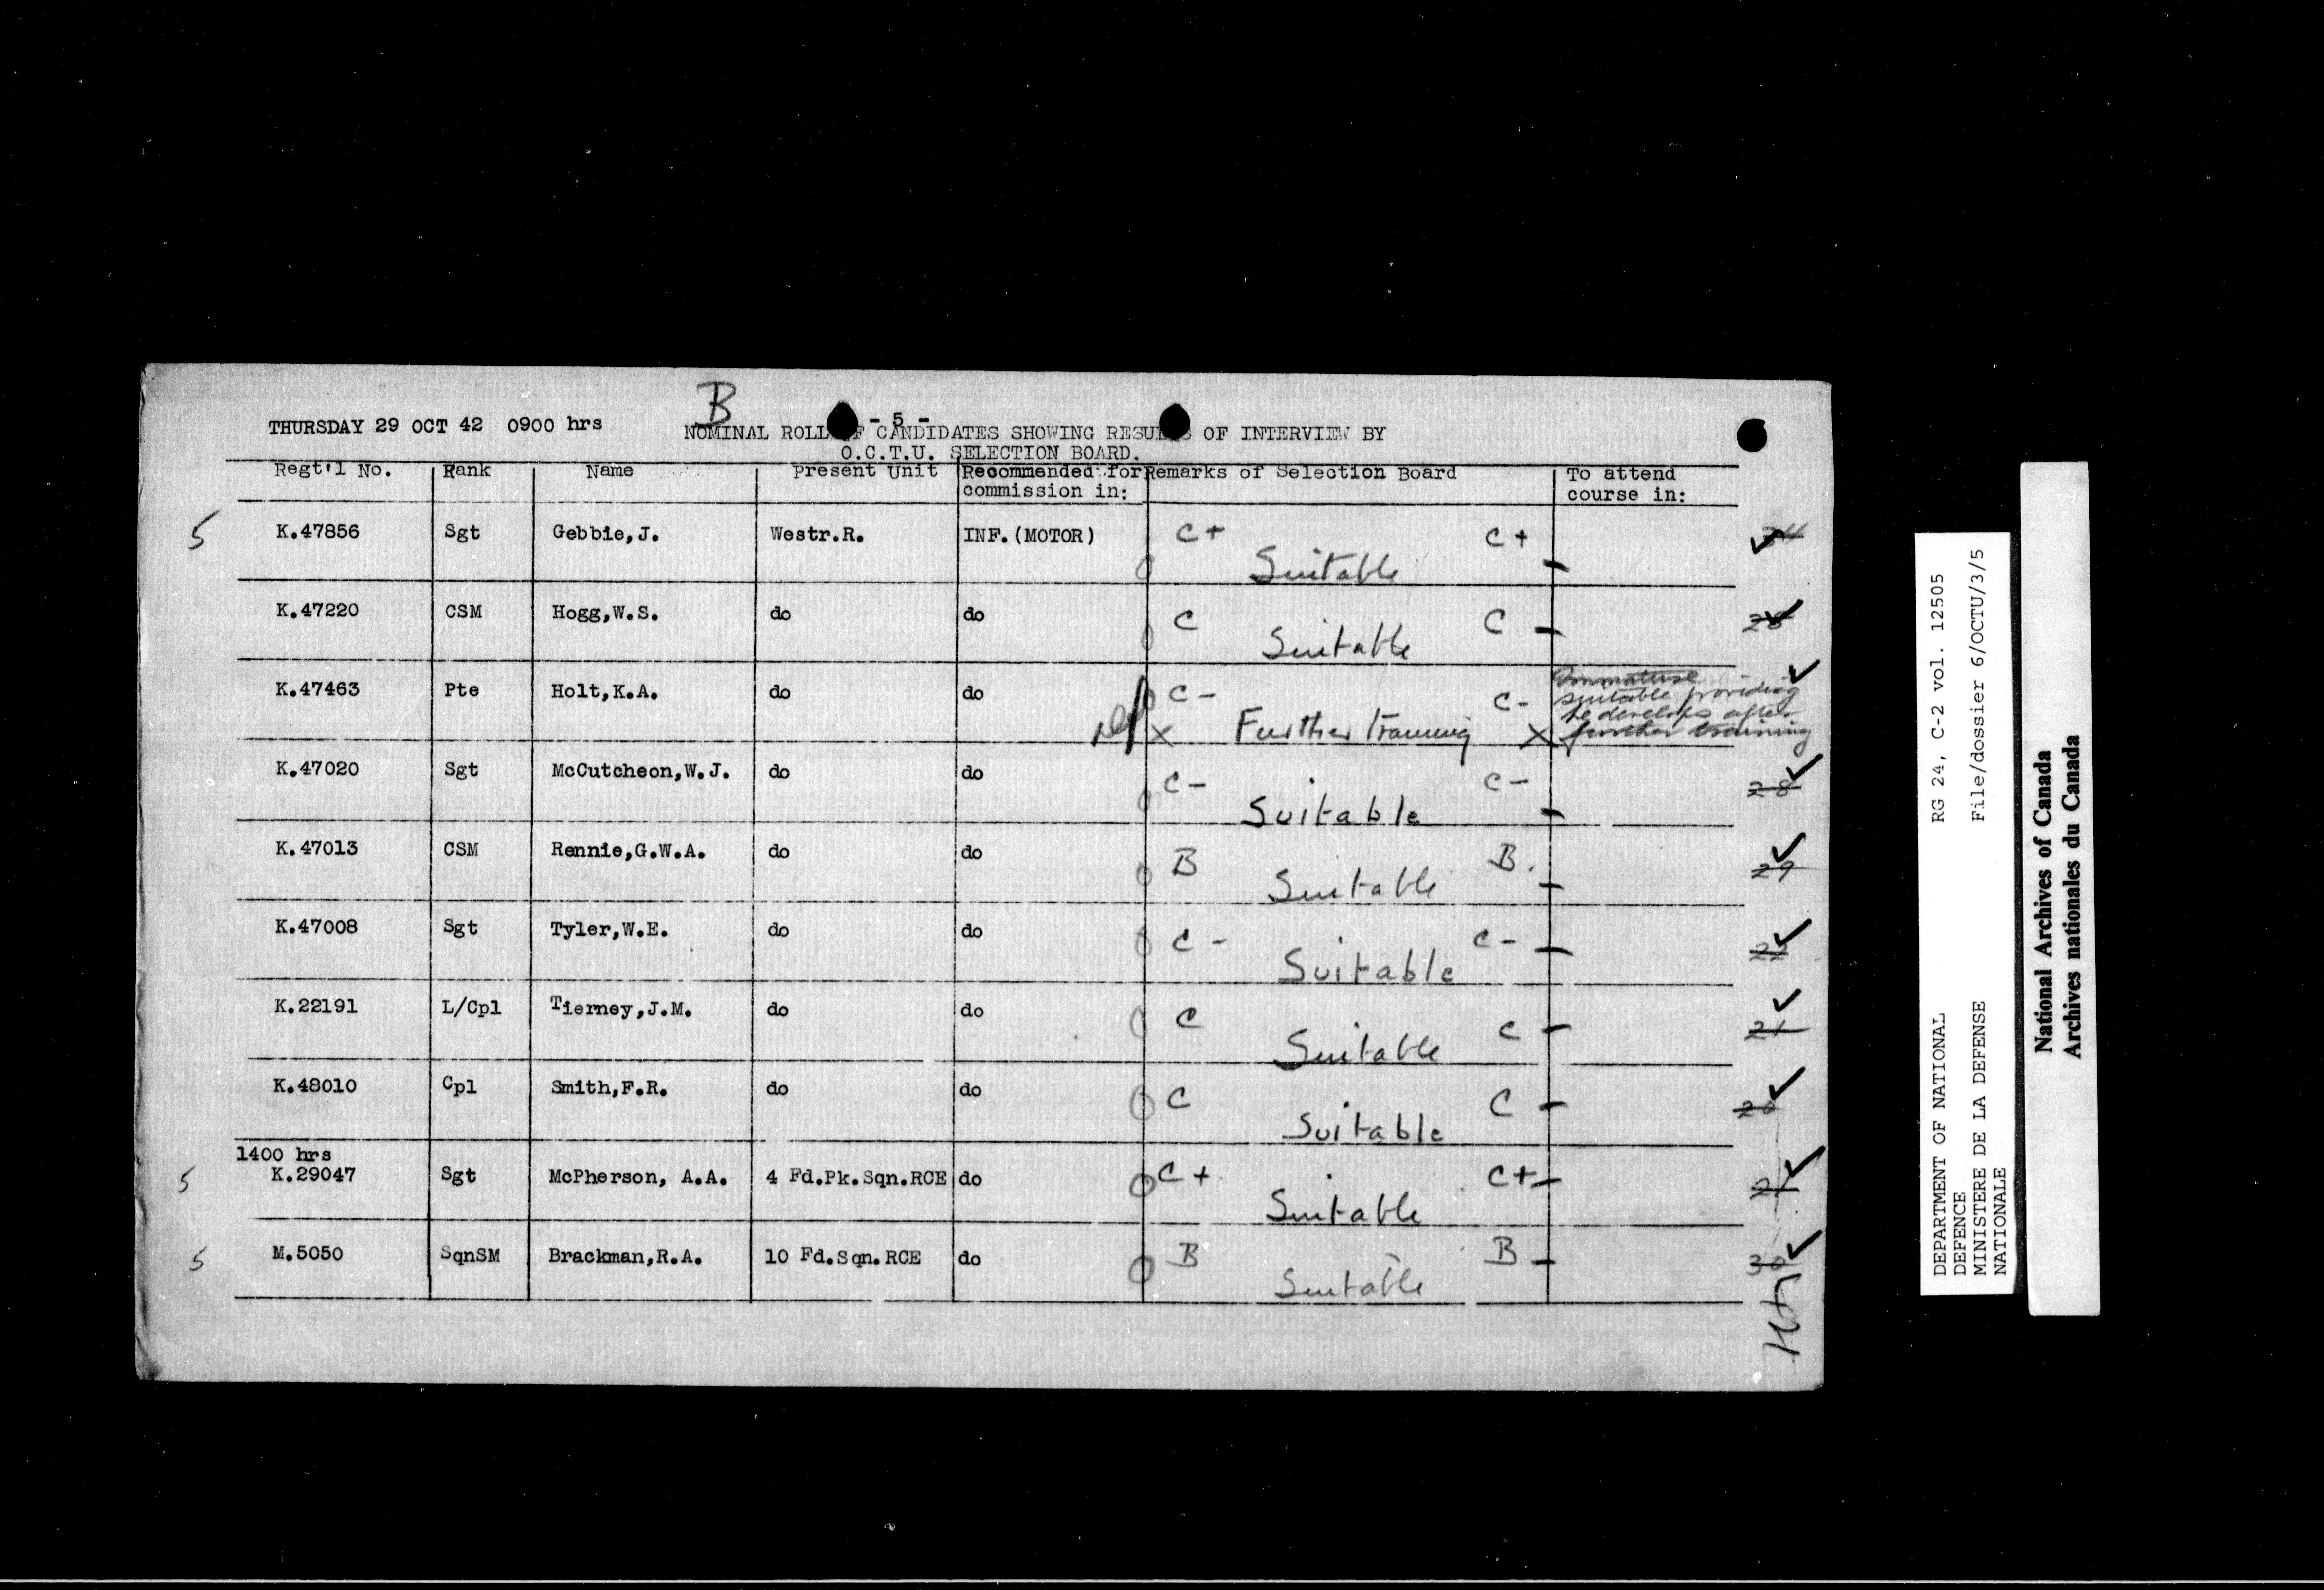 B
THURSDAY 29 OCT 42 0900 hrs
- 5 -
NOMINAL ROLL OF CANDIDATES SHOWING RESULTS OF INTERVIEW BY
O.C.T.U. SELECTION BOARD.
Regt'l No. Rank Name Present Unit Recommended for commission in: Remarks of Selection Board To attend course in:
5 K.47856 Sgt Gebbie,J. Westr.R. INF.(MOTOR) C+ Suitable C+
K.47220 CSM Hogg,W.S. do do C Suitable C
K.47463 Pte Holt,K.A. do do C- Further Training C- X X
Immature
suitable providing
he develops after
further training
K.47020 Sgt McCutcheon,W.J. do do C- Suitable C- 28
K.47013 CSM Rennie,G.W.A. do do B Suitable B. 29
K.47008 Sgt Tyler,W.E. do do C- Suitable C- 22
K.22191 L/Cpl Tierney,J.M. do do C Suitable C 21
K.48010 Cpl Smith,F.R. do do C Suitable C
1400 hrs
5 K.29047 Sgt McPherson, A.A. 4 Fd.Pk.Sqn.RCE do C+ Suitable C+ 21
5 M.5050 SqnSM Brackman,R.A. 10 Fd.Sqn.RCE do B Suitable B 30
DEPARTMENT OF NATIONAL DEFENCE
MINISTERE DE LA DEFENSE NATIONALE
RG 24, C-2 vol. 12505
File/dossier 6/OCTU/3/5
National Archives of Canada
Archives nationales du Canada